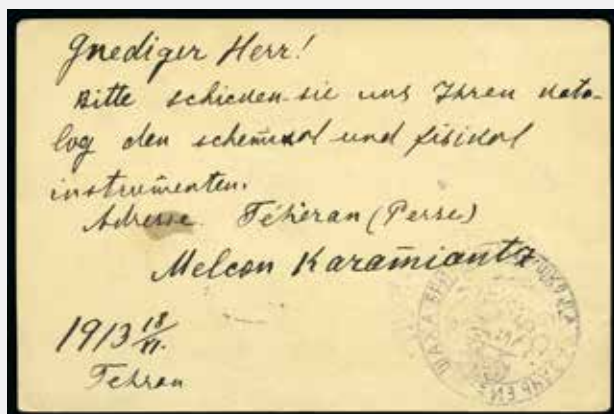 Gnediger Herr!
Bitte schicken sie uns Ihren Kata-
log den schemikal und fisikal
instrumenten.
Adresse. Téhéran (Perse)
Melcon Karamiantz
1913 18/VI.
Tehran